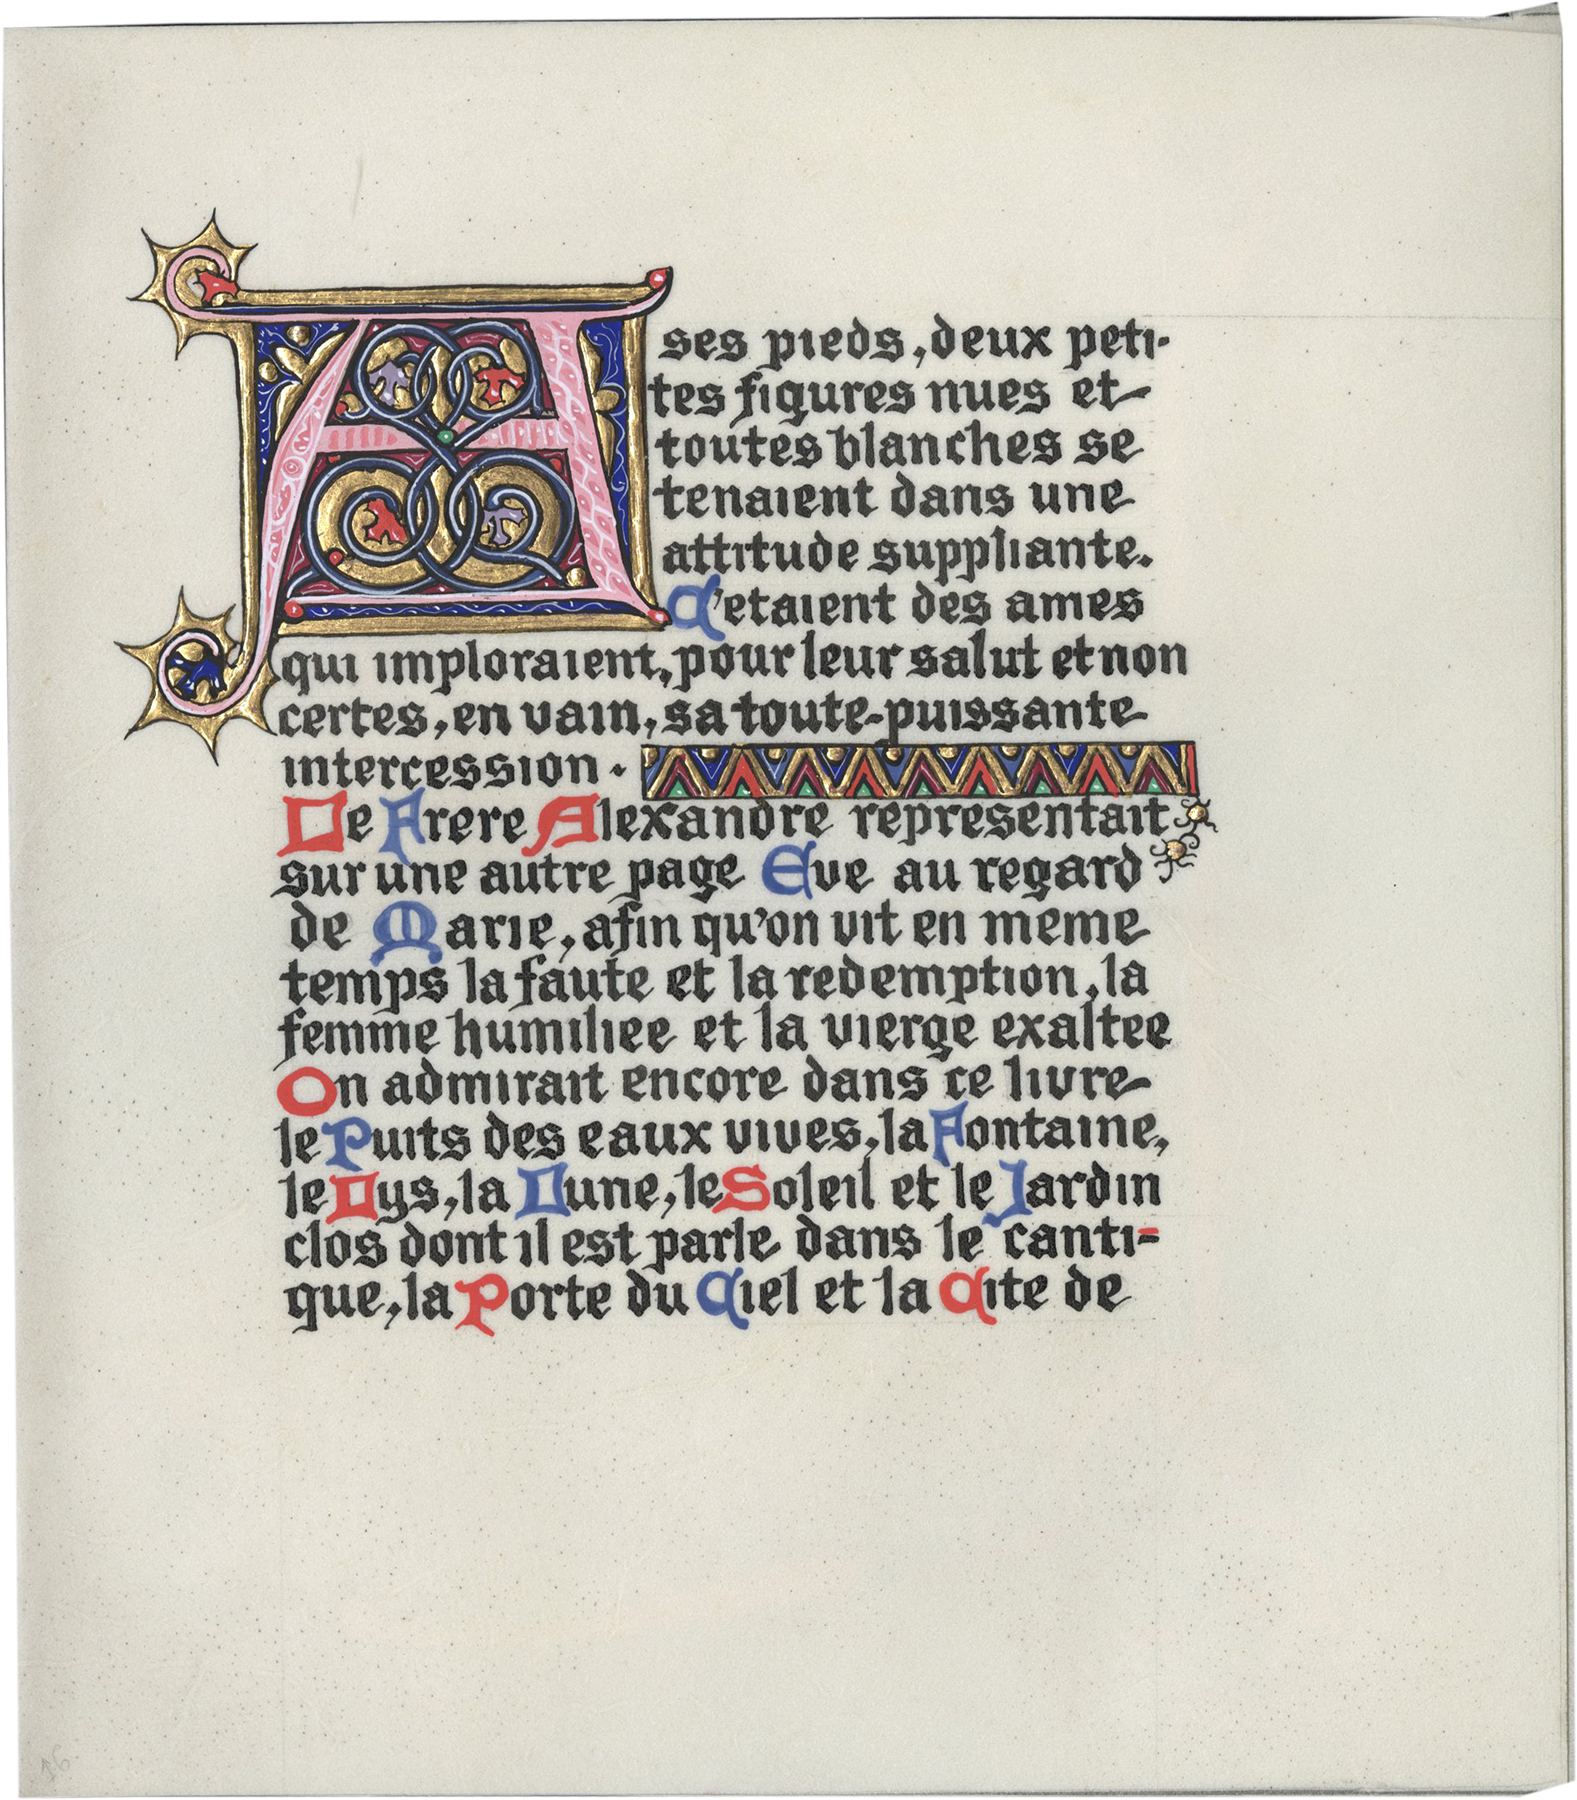 A ses pieds, deux peti-
tes figures nues et
toutes blanches se
tenaient dans une
attitude suppliante.
C'etaient des ames
qui imploraient, pour leur salut et non
certes, en vain, sa toute-puissante
intercession.
Le Frere Alexandre representait
sur une autre page Eve au regard
de Marie, afin qu'on vit en meme
temps la faute et la redemption, la
femme humiliee et la vierge exaltee
On admirait encore dans ce livre
le Puits des eaux vives, la Fontaine,
le Lys, la Lune, le Soleil et le Jardin
clos dont il est parle dans le canti=
que, la Porte du Ciel et la Cite de